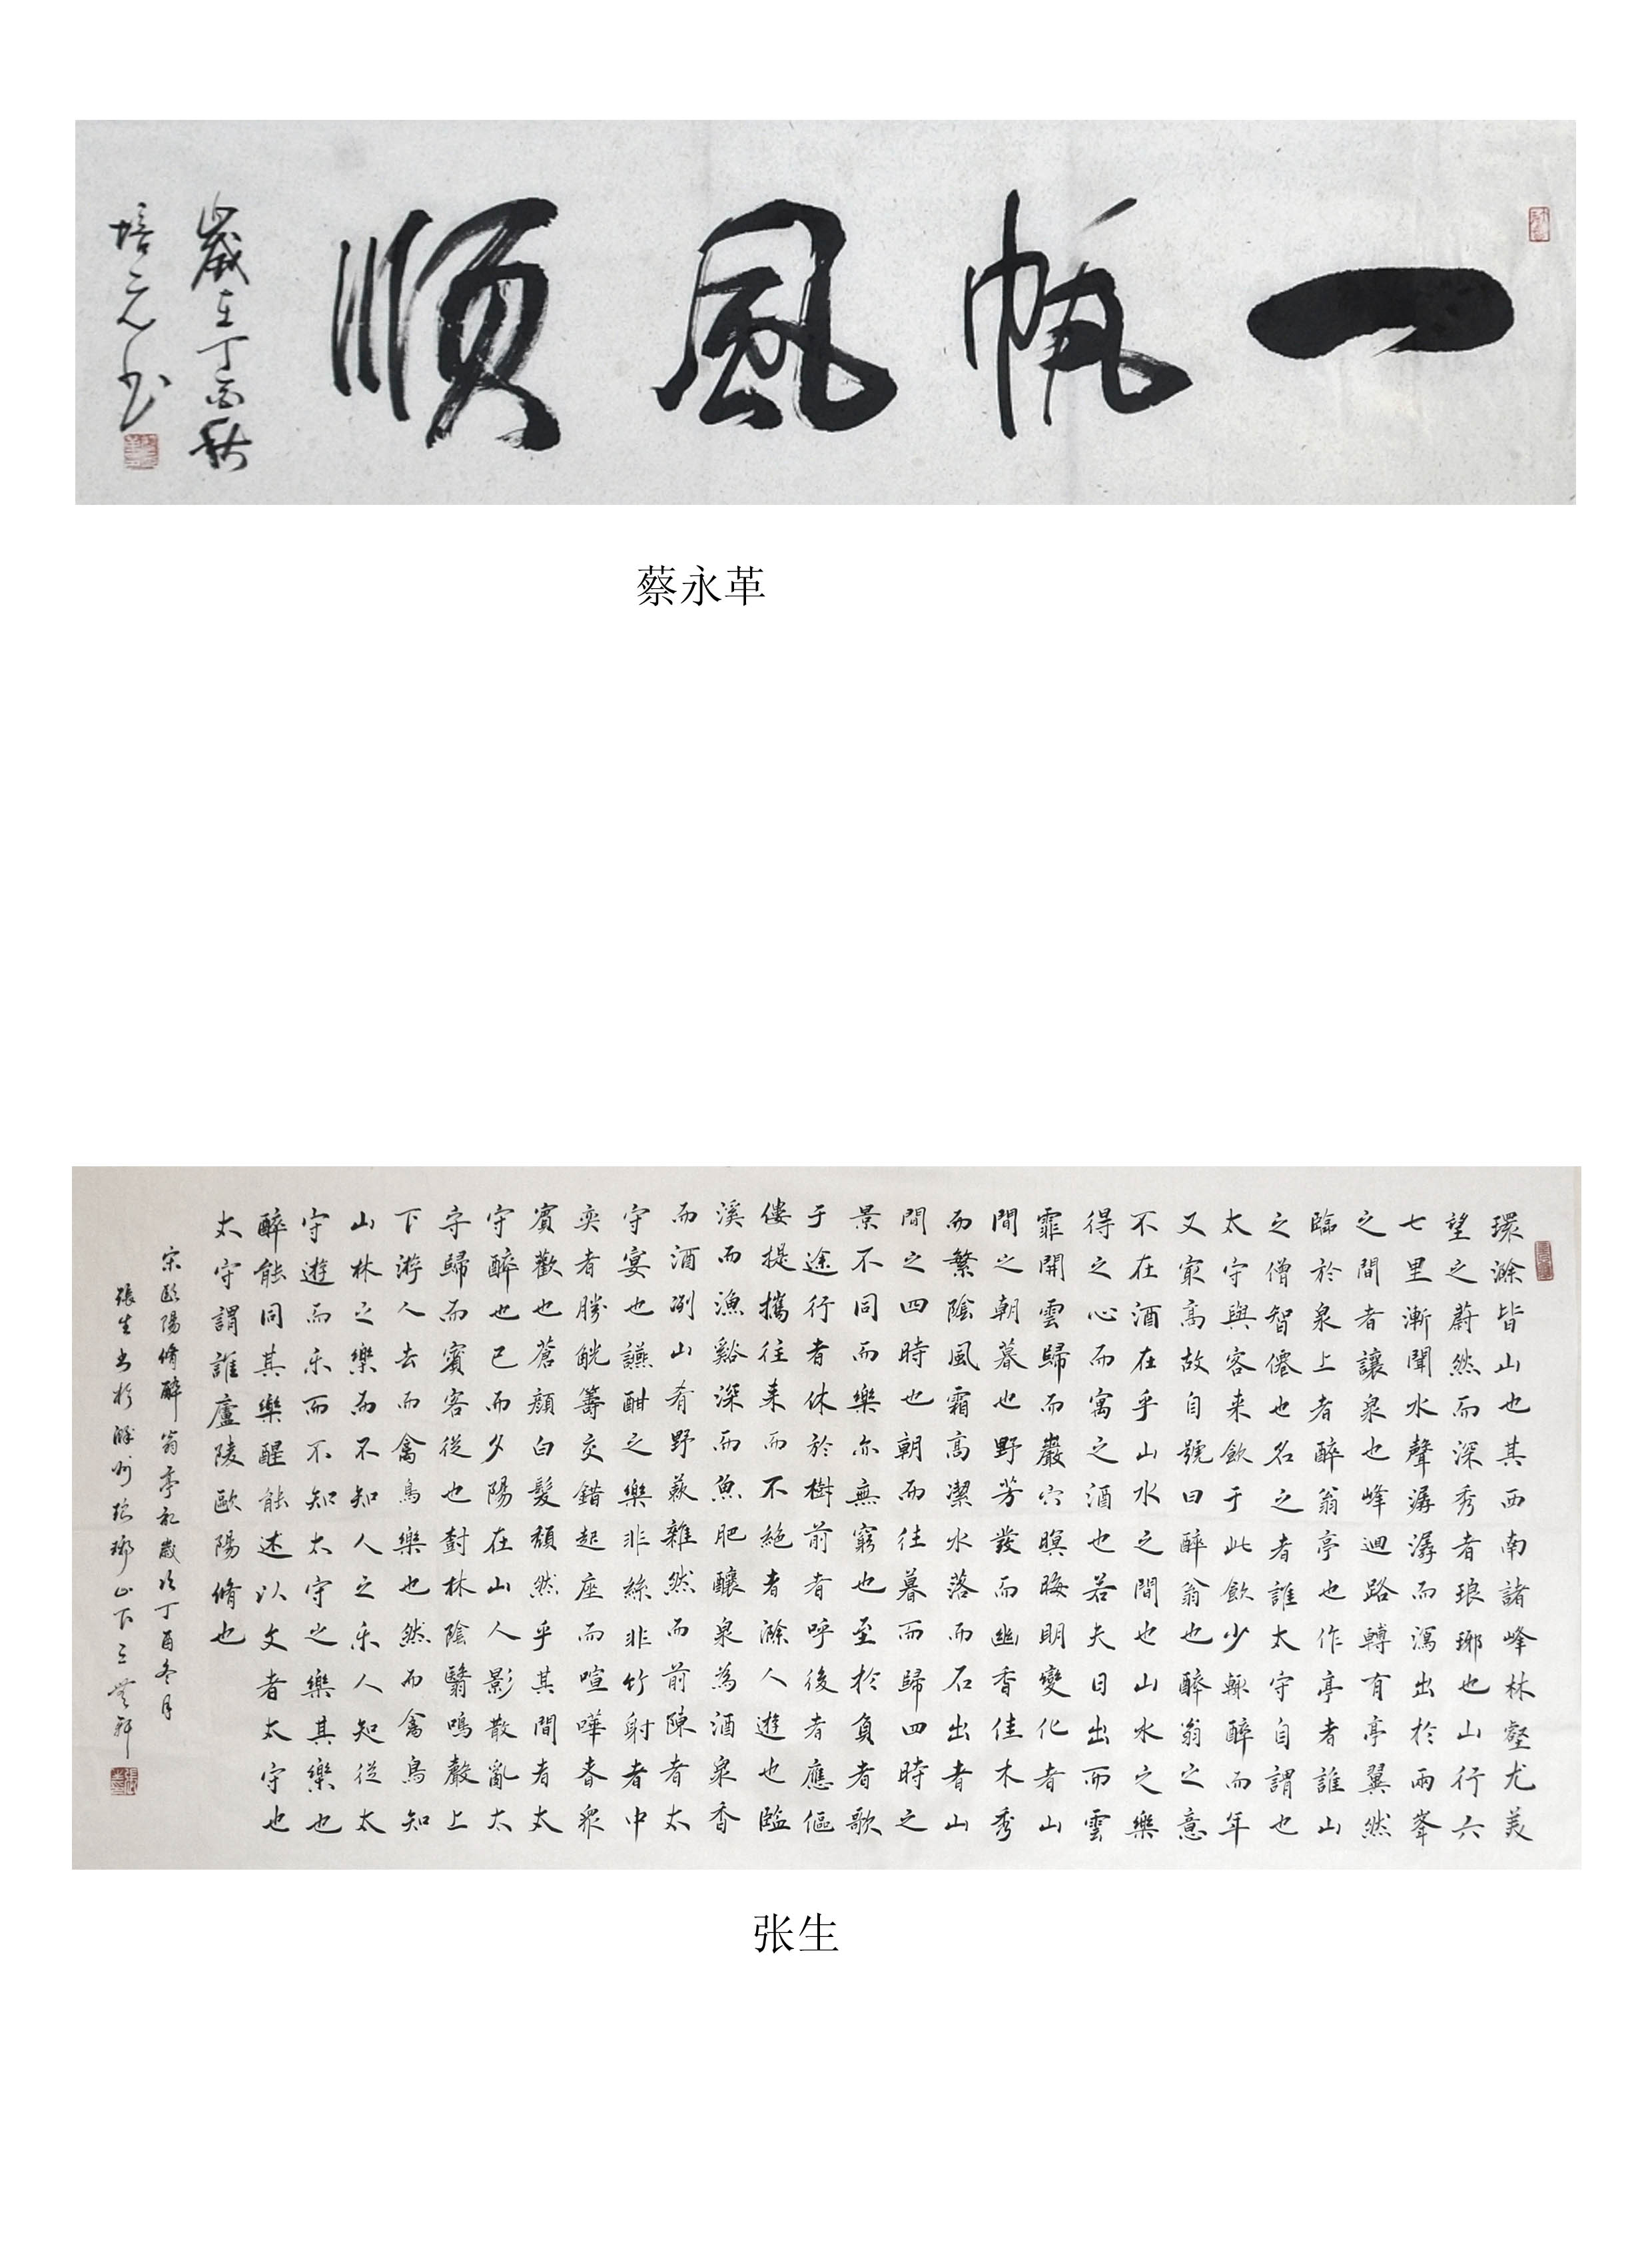 一帆風順
歲在丁酉秋
培元书
蔡永革
環滁皆山也其西南諸峰林壑尤美
望之蔚然而深秀者琅琊也山行六
七里漸聞水聲潺潺而瀉出於兩峯
之間者讓泉也峰迴路轉有亭翼然
臨於泉上者醉翁亭也作亭者誰山
之僧智僊也名之者誰太守自謂也
太守與客来飲于此飲少輒醉而年
又㝡高故自號曰醉翁也醉翁之意
不在酒在乎山水之間也山水之樂
得之心而寓之酒也若夫日出而雲
霏開雲歸而巖穴暝晦明變化者山
間之朝暮也野芳發而幽香佳木秀
而繁陰風霜高潔水落而石出者山
間之四時也朝而往暮而歸四時之
景不同而樂亦無窮也至於負者歌
于途行者休於樹前者呼後者應傴
僂提攜往来而不絕者滁人遊也臨
溪而漁谿深而魚肥釀泉為酒泉香
而酒冽山肴野蔌雜然而前陳者太
守宴也讌酣之樂非絲非竹射者中
奕者勝觥籌交錯起座而喧嘩者眾
賓歡也蒼顏白髮頹然乎其間者太
守醉也已而夕陽在山人影散亂太
守歸而賓客從也對林陰翳鳴聲上
下游人去而禽鳥樂也然而禽鳥知
山林之樂而不知人之乐人知從太
守遊而乐而不知太守之樂其樂也
醉能同其樂醒能述以文者太守也
太守謂誰廬陵歐陽脩也
宋歐陽脩醉翁亭記歲次丁酉冬月
張生书於滁州琅琊山下三軒
张生